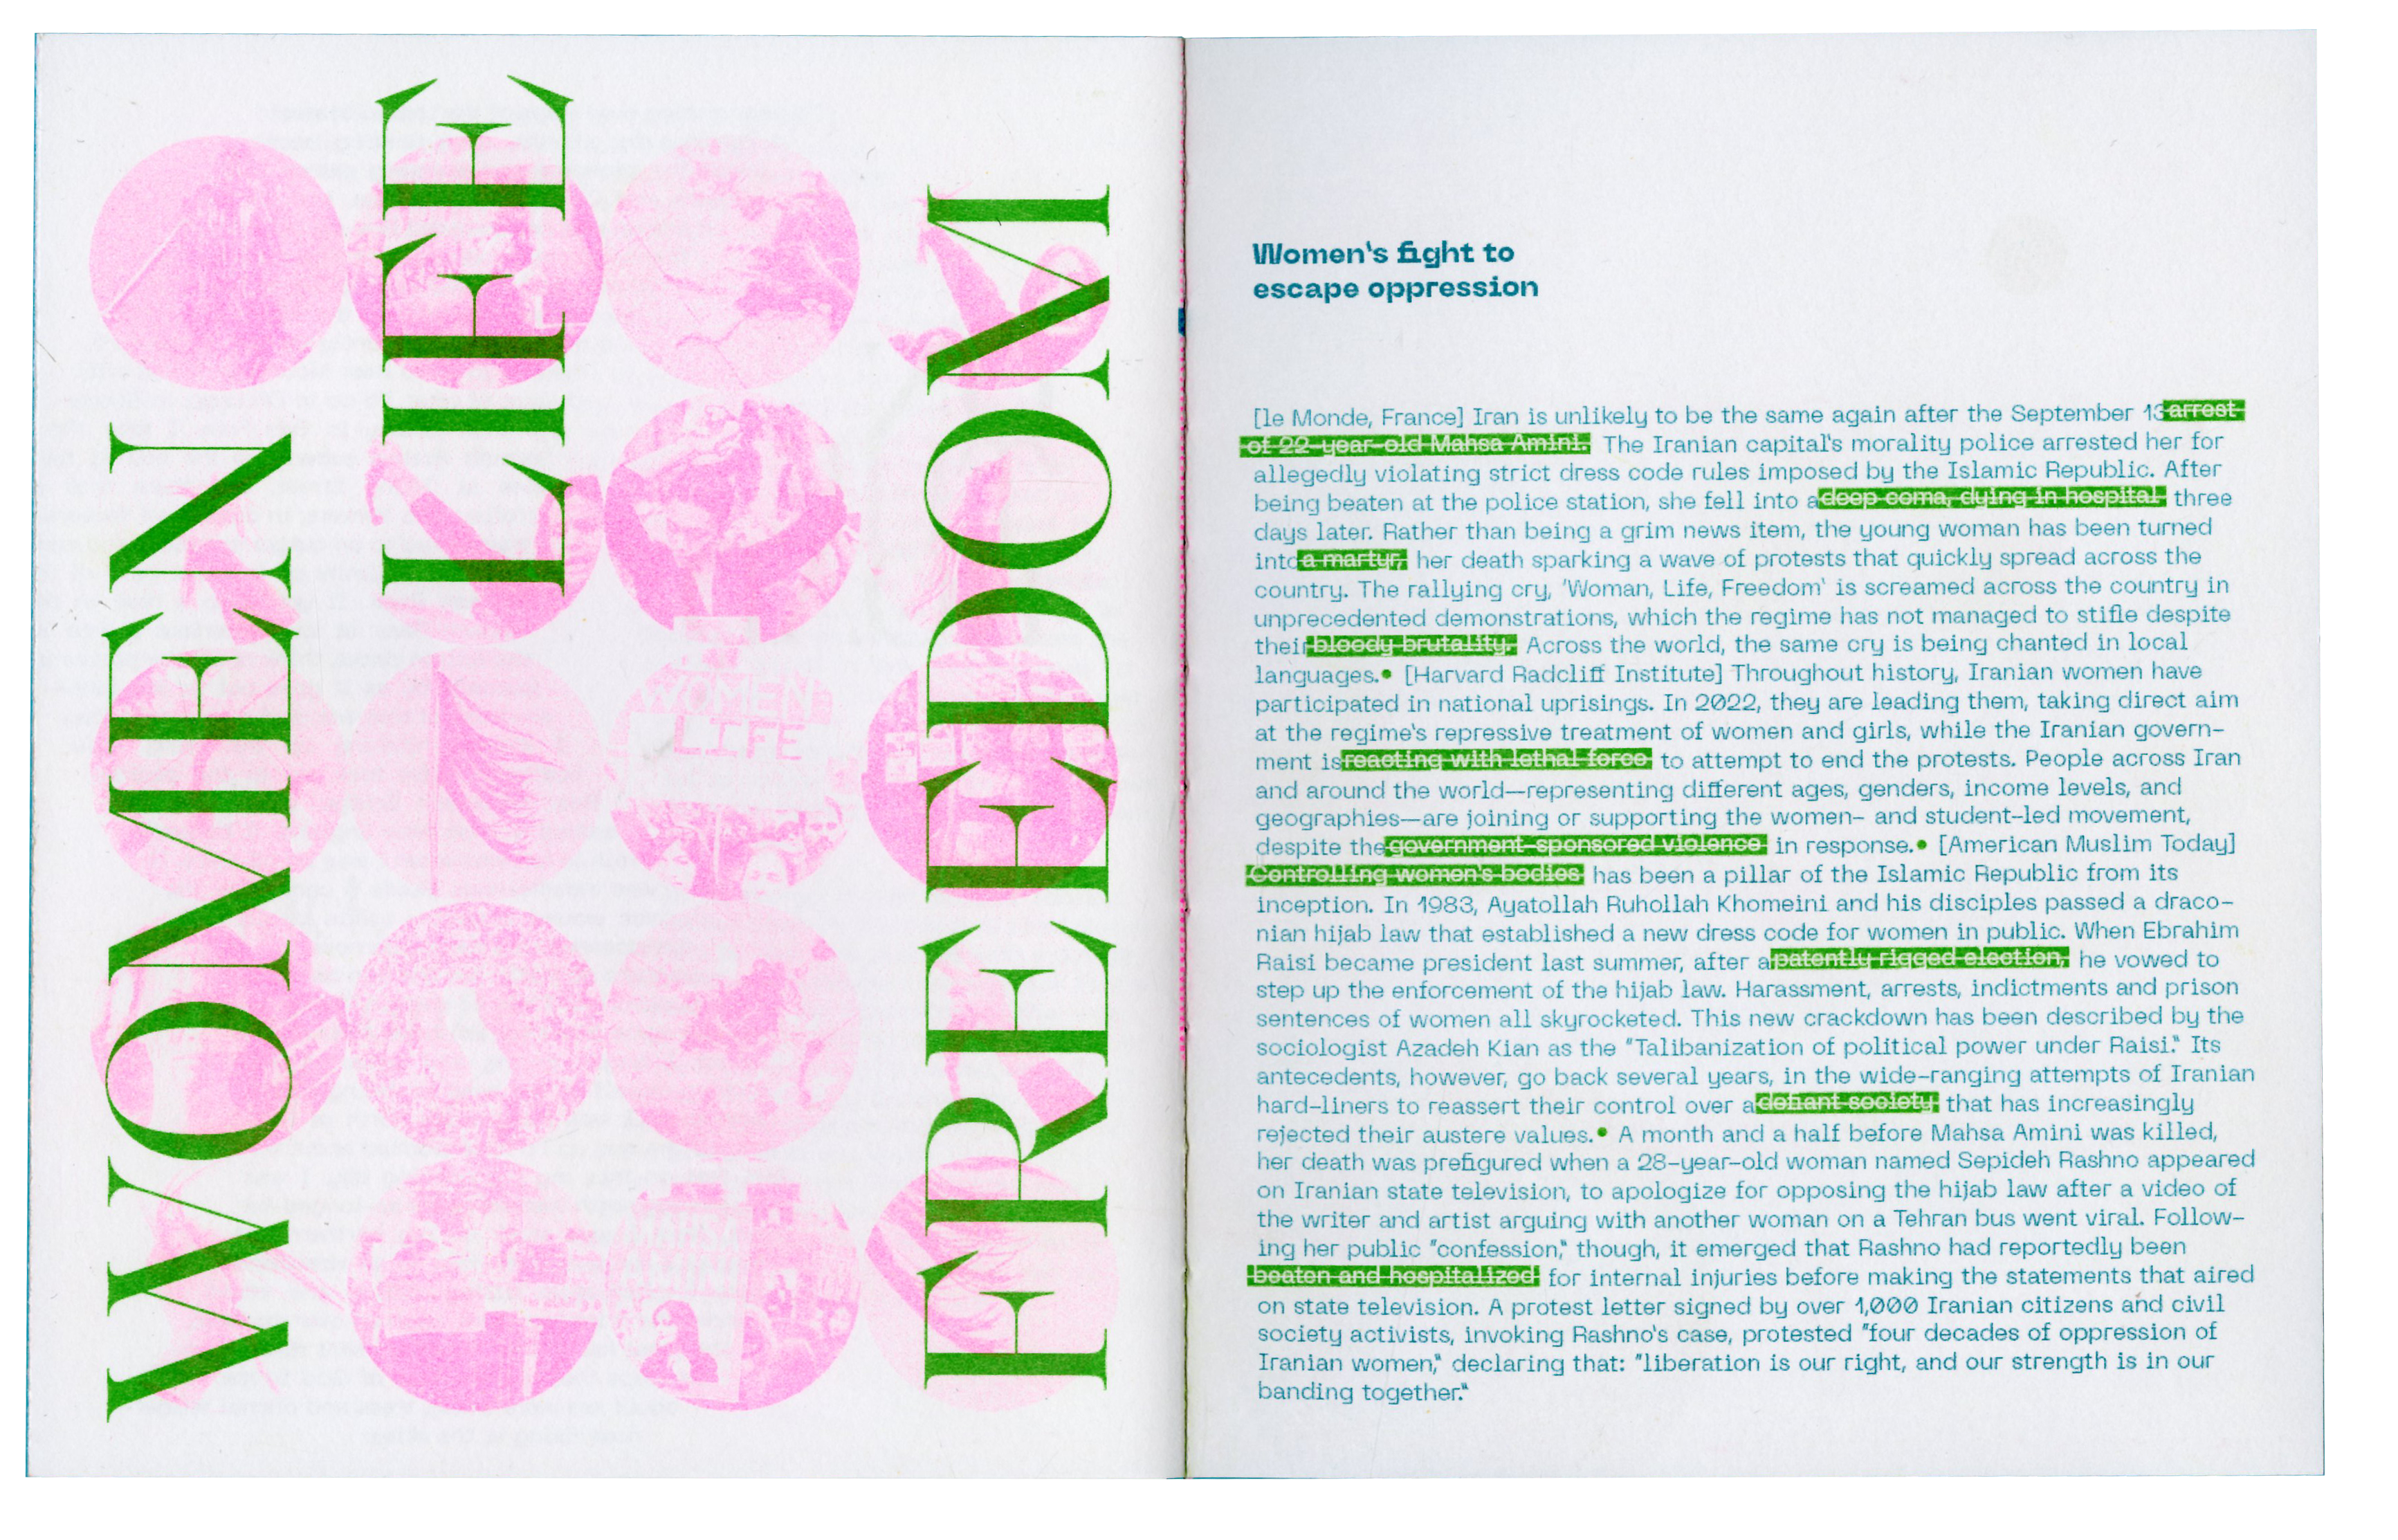 WOMEN
LIFE
FREEDOM
IRAN
WOMEN
LIFE
MAHSA
AMINI
Women's fight to
escape oppression
[le Monde, France] Iran is unlikely to be the same again after the September 13 arrest
of 22-year-old Mahsa Amini. The Iranian capital's morality police arrested her for
allegedly violating strict dress code rules imposed by the Islamic Republic. After
being beaten at the police station, she fell into a deep coma, dying in hospital three
days later. Rather than being a grim news item, the young woman has been turned
into a martyr, her death sparking a wave of protests that quickly spread across the
country. The rallying cry, 'Woman, Life, Freedom' is screamed across the country in
unprecedented demonstrations, which the regime has not managed to stifle despite
their bloody brutality. Across the world, the same cry is being chanted in local
languages.• [Harvard Radcliff Institute] Throughout history, Iranian women have
participated in national uprisings. In 2022, they are leading them, taking direct aim
at the regime's repressive treatment of women and girls, while the Iranian govern-
ment is reacting with lethal force to attempt to end the protests. People across Iran
and around the world—representing different ages, genders, income levels, and
geographies—are joining or supporting the women- and student-led movement,
despite the government-sponsored violence in response.• [American Muslim Today]
Controlling women's bodies has been a pillar of the Islamic Republic from its
inception. In 1983, Ayatollah Ruhollah Khomeini and his disciples passed a draco-
nian hijab law that established a new dress code for women in public. When Ebrahim
Raisi became president last summer, after a patently rigged election, he vowed to
step up the enforcement of the hijab law. Harassment, arrests, indictments and prison
sentences of women all skyrocketed. This new crackdown has been described by the
sociologist Azadeh Kian as the "Talibanization of political power under Raisi." Its
antecedents, however, go back several years, in the wide-ranging attempts of Iranian
hard-liners to reassert their control over a defiant society that has increasingly
rejected their austere values.• A month and a half before Mahsa Amini was killed,
her death was prefigured when a 28-year-old woman named Sepideh Rashno appeared
on Iranian state television, to apologize for opposing the hijab law after a video of
the writer and artist arguing with another woman on a Tehran bus went viral. Follow-
ing her public "confession," though, it emerged that Rashno had reportedly been
beaten and hospitalized for internal injuries before making the statements that aired
on state television. A protest letter signed by over 1,000 Iranian citizens and civil
society activists, invoking Rashno's case, protested "four decades of oppression of
Iranian women," declaring that: "liberation is our right, and our strength is in our
banding together."